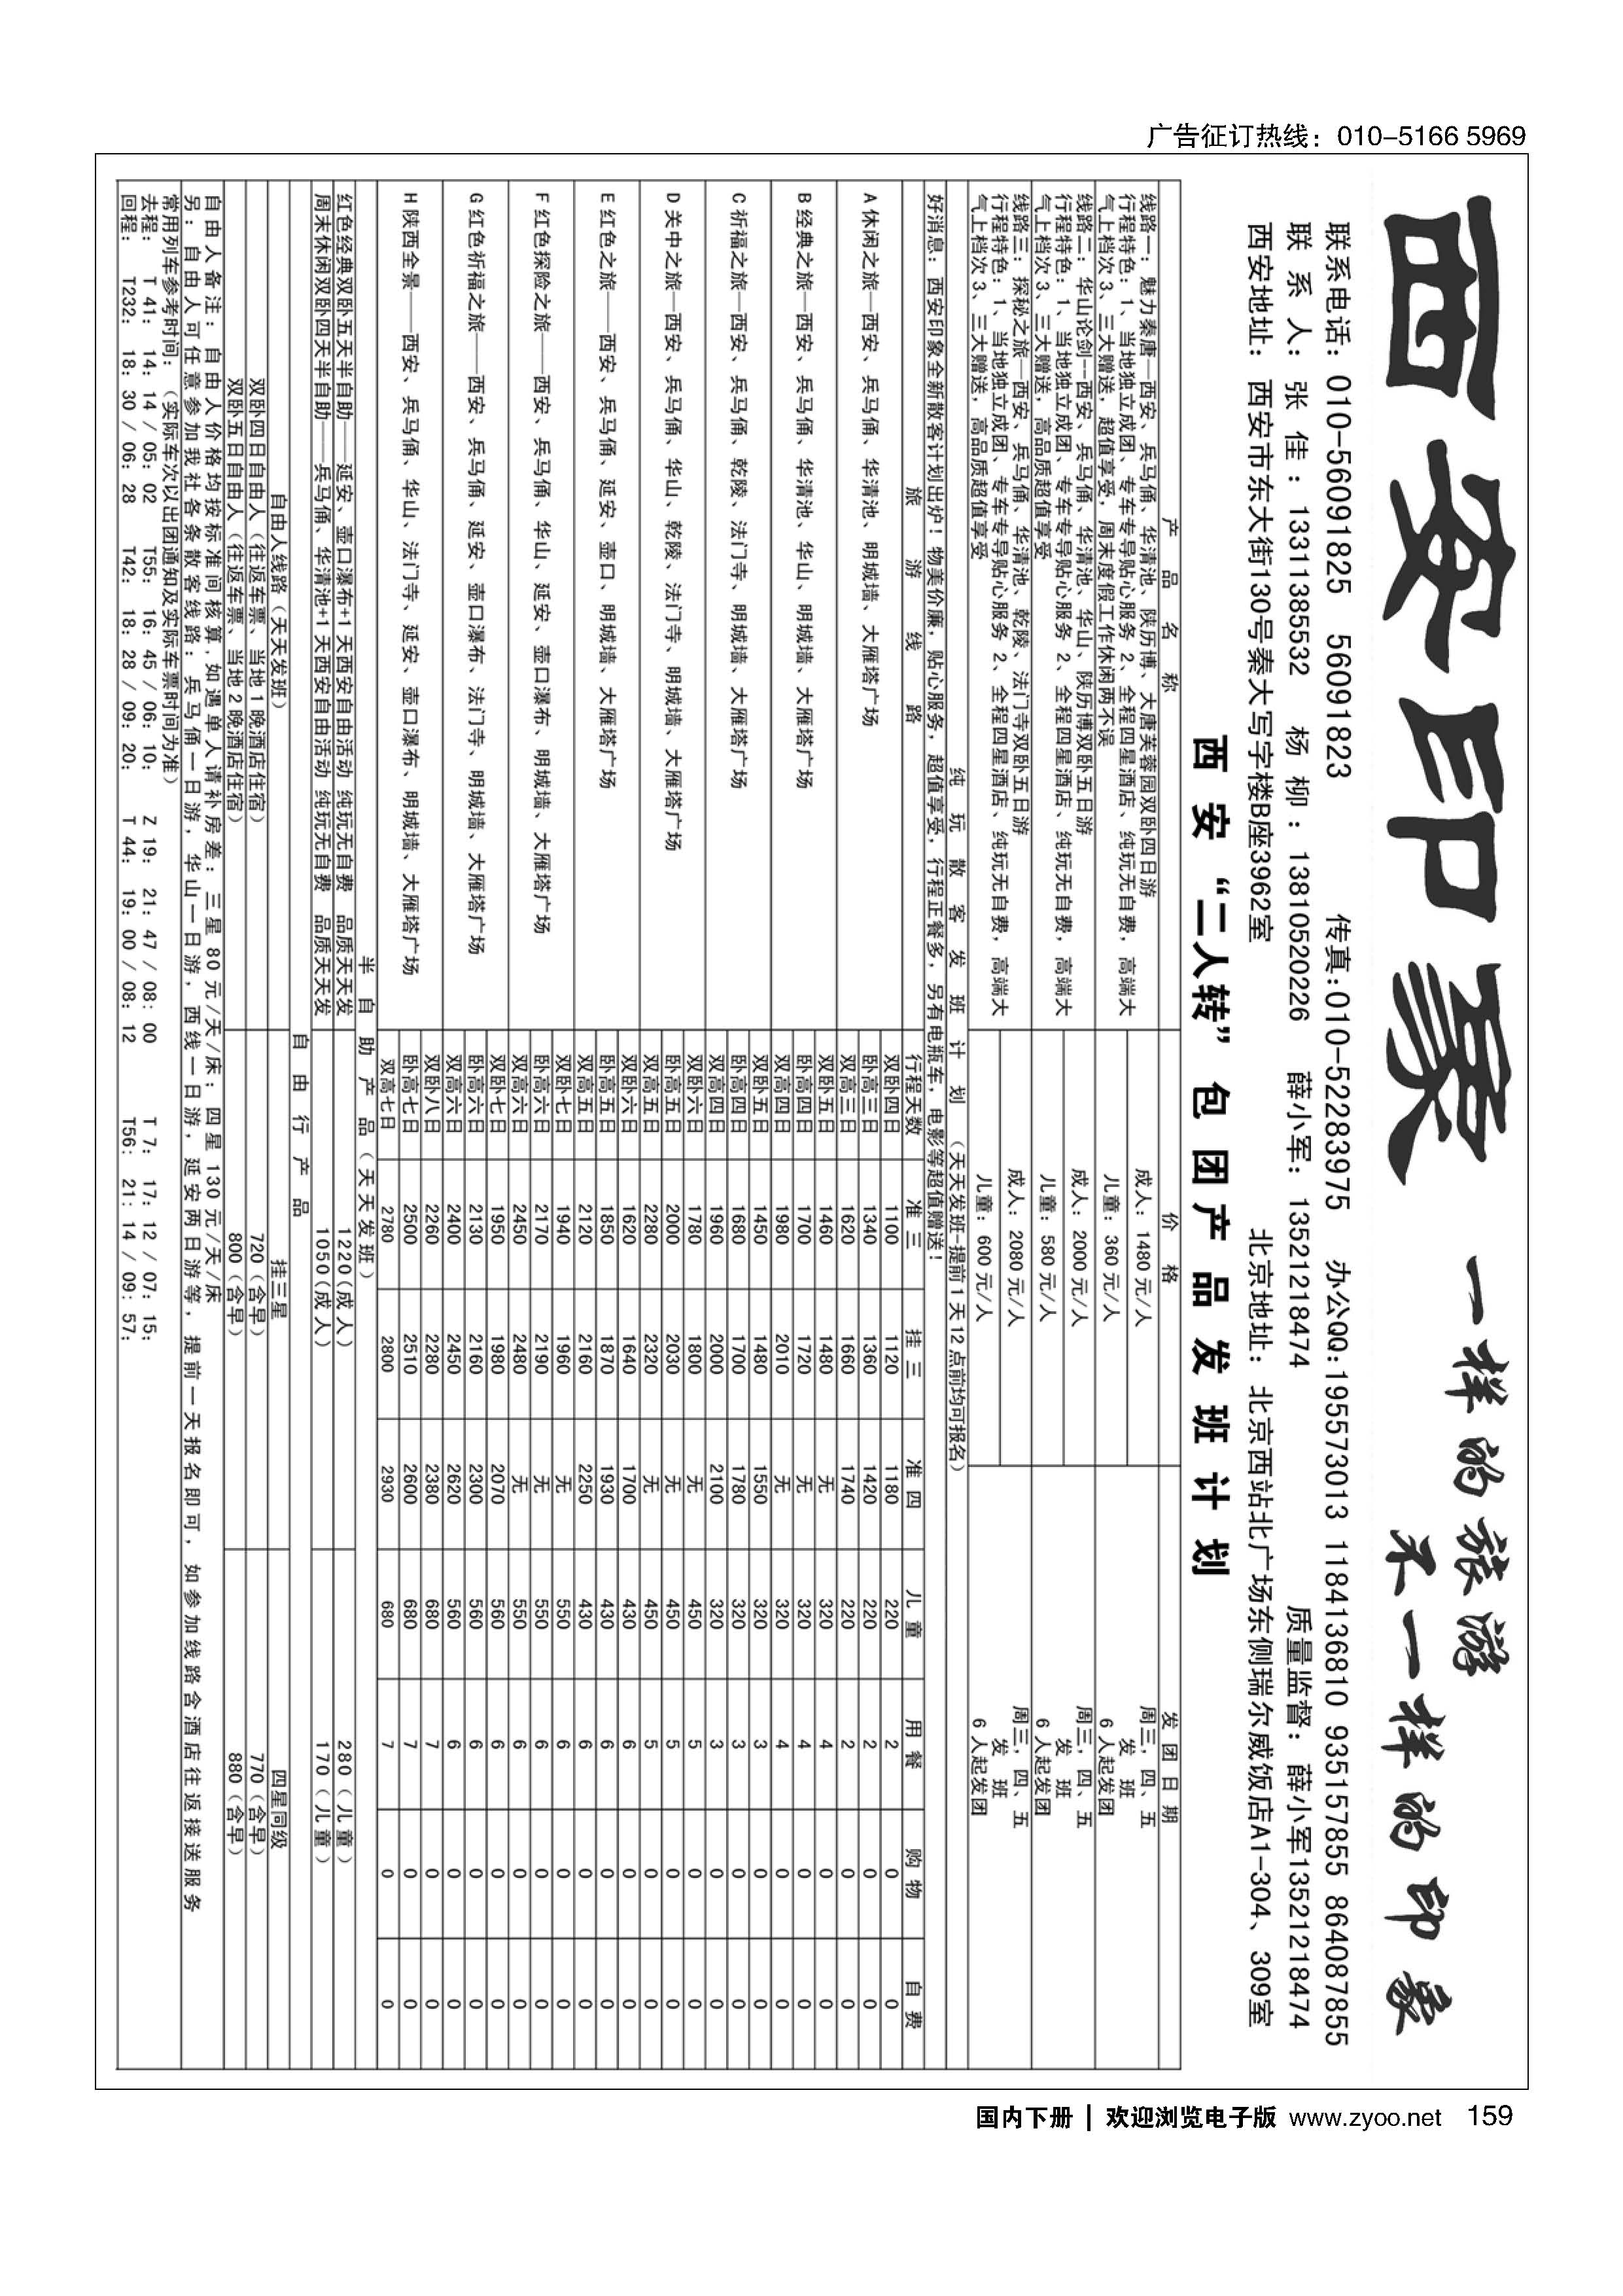 广告征订热线：010-5166 5969
西安印象
一样的旅游
不一样的印象
联系电话：010-56091825 56091823 传真:010-52283975 办公QQ:195573013 1184136810 935157855 864087855
联系人：张佳：13311385532 杨柳：13810520226 薛小军：13521218474 质量监督：薛小军13521218474
西安地址：西安市东大街130号秦大写字楼B座3962室 北京地址：北京西站北广场东侧瑞尔威饭店A1-304、309室
西安“二人转”包团产品发班计划
产品名称 价格 发团日期
线路一：魅力秦唐—西安、兵马俑、华清池、陕历博、大唐芙蓉园双卧四日游 成人：1480 元/人 周三，四、五
行程特色：1、当地独立成团、专车专导贴心服务 2、全程四星酒店、纯玩无自费，高端大 发 班
气上档次 3、三大赠送，超值享受，周末度假工作休闲两不误 儿童：360 元/人 6 人起发团
线路二：华山论剑--西安、兵马俑、华清池、华山、陕历博双卧五日游 成人：2000 元/人 周三，四、五
行程特色：1、当地独立成团、专车专导贴心服务 2、全程四星酒店、纯玩无自费，高端大 发 班
气上档次 3、三大赠送，高品质超值享受 儿童：580 元/人 6 人起发团
线路三：探秘之旅—西安、兵马俑、华清池、乾陵、法门寺双卧五日游 成人：2080 元/人 周三，四、五
行程特色：1、当地独立成团、专车专导贴心服务 2、全程四星酒店、纯玩无自费，高端大 发 班
气上档次 3、三大赠送，高品质超值享受 儿童：600 元/人 6 人起发团
纯玩散客发班计划（天天发班-提前 1 天 12 点前均可报名）
好消息：西安印象全新散客计划出炉！物美价廉，贴心服务，超值享受，行程正餐多，另有电瓶车，电影等超值赠送！
旅游线路 行程天数 准三 挂三 准四 儿童 用餐 购物 自费
A 休闲之旅—西安、兵马俑、华清池、明城墙、大雁塔广场
双卧四日 1100 1120 1180 220 2 0 0
卧高三日 1340 1360 1420 220 2 0 0
双高三日 1620 1660 1740 220 2 0 0
B 经典之旅—西安、兵马俑、华清池、华山、明城墙、大雁塔广场
双卧五日 1460 1480 无 320 4 0 0
卧高四日 1700 1720 无 320 4 0 0
双高四日 1980 2010 无 320 4 0 0
C 祈福之旅—西安、兵马俑、乾陵、法门寺、明城墙、大雁塔广场
双卧五日 1450 1480 1550 320 3 0 0
卧高四日 1680 1700 1780 320 3 0 0
双高四日 1960 2000 2100 320 3 0 0
D 关中之旅—西安、兵马俑、华山、乾陵、法门寺、明城墙、大雁塔广场
双卧六日 1780 1800 无 450 5 0 0
卧高五日 2000 2030 无 450 5 0 0
双高五日 2280 2320 无 450 5 0 0
E 红色之旅——西安、兵马俑、延安、壶口、明城墙、大雁塔广场
双卧六日 1620 1640 1700 430 6 0 0
卧高五日 1850 1870 1930 430 6 0 0
双高五日 2120 2160 2250 430 6 0 0
F 红色探险之旅——西安、兵马俑、华山、延安、壶口瀑布、明城墙、大雁塔广场
双卧七日 1940 1960 无 550 6 0 0
卧高六日 2170 2190 无 550 6 0 0
双高六日 2450 2480 无 550 6 0 0
G 红色祈福之旅——西安、兵马俑、延安、壶口瀑布、法门寺、明城墙、大雁塔广场
双卧七日 1950 1980 2070 560 6 0 0
卧高六日 2130 2160 2300 560 6 0 0
双高六日 2400 2450 2620 560 6 0 0
H 陕西全景——西安、兵马俑、华山、法门寺、延安、壶口瀑布、明城墙、大雁塔广场
双卧八日 2260 2280 2380 680 7 0 0
卧高七日 2500 2510 2600 680 7 0 0
双高七日 2780 2800 2930 680 7 0 0
半自助产品（天天发班）
红色经典双卧五天半自助——延安、壶口瀑布+1 天西安自由活动 纯玩无自费 品质天天发 1220（成人） 280（儿童）
周末休闲双卧四天半自助——兵马俑、华清池+1 天西安自由活动 纯玩无自费 品质天天发 1050（成人） 170（儿童）
自由行产品
自由人线路（天天发班） 挂三星 四星同级
双卧四日自由人（往返车票、当地 1 晚酒店住宿） 720（含早） 770（含早）
双卧五日自由人（往返车票、当地 2 晚酒店住宿） 800（含早） 880（含早）
自由人备注：自由人价格均按标准间核算，如遇单人请补房差：三星 80 元/天/床；四星 130 元/天/床
另：自由人可任意参加我社各条散客线路：兵马俑一日游，华山一日游，西线一日游，延安两日游等，提前一天报名即可，如参加线路含酒店往返接送服务
常用列车参考时间：（实际车次以出团通知及实际车票时间为准）
去程： T 41： 14：14 / 05：02 T55： 16：45 / 06：10： Z 19： 21：47 / 08：00 T 7： 17：12 / 07：15：
回程： T232： 18：30 / 06：28 T42： 18：28 / 09：20： T 44： 19：00 / 08：12 T56： 21：14 / 09：57：
国内下册 | 欢迎浏览电子版 www.zyoo.net 159